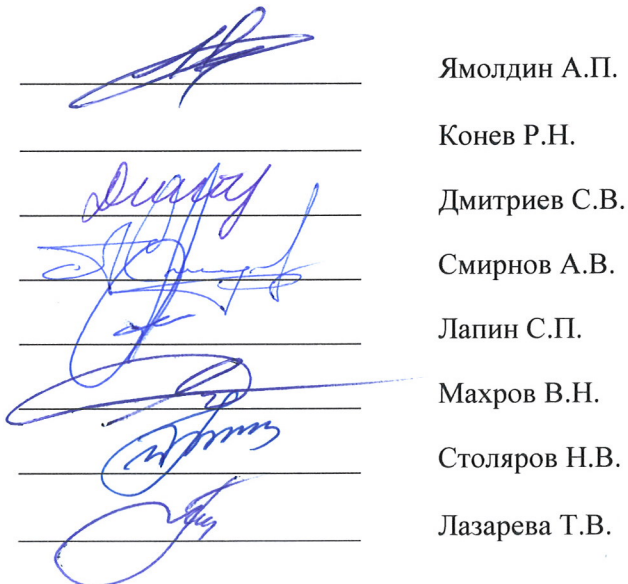 Ямолдин А.П.
Конев Р.Н.
Дмитриев С.В.
Смирнов А.В.
Лапин С.П.
Махров В.Н.
Столяров Н.В.
Лазарева Т.В.